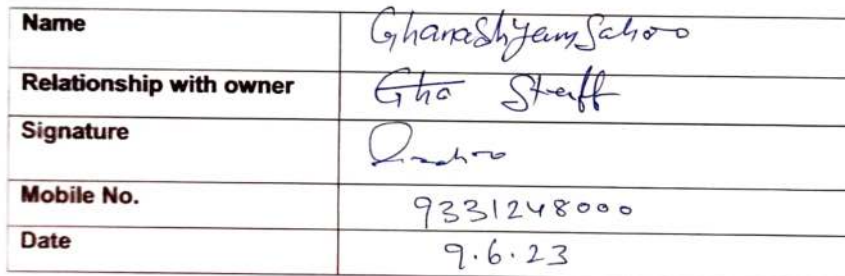 Name GhanaShyam Sahoo
Relationship with owner Gha Staff
Signature
Mobile No. 9331248000
Date 9.6.23